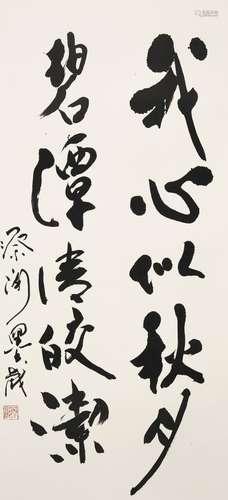 我心似秋月
碧潭清皎潔
墨戲